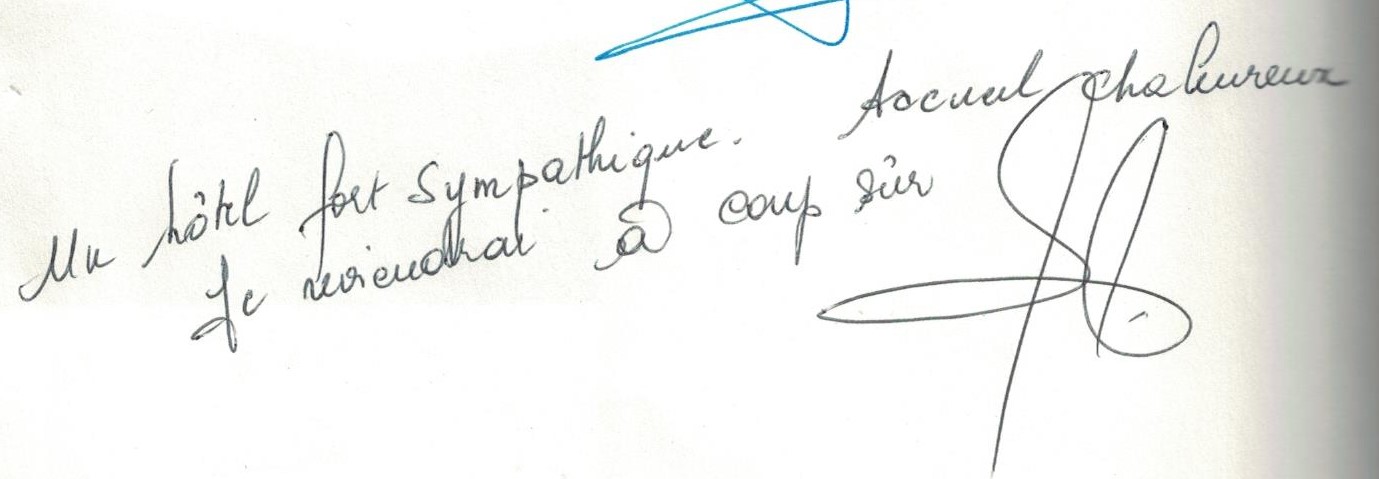 Un hôtel fort sympathique. Accueil chaleureux
Je reviendrai à coup sûr